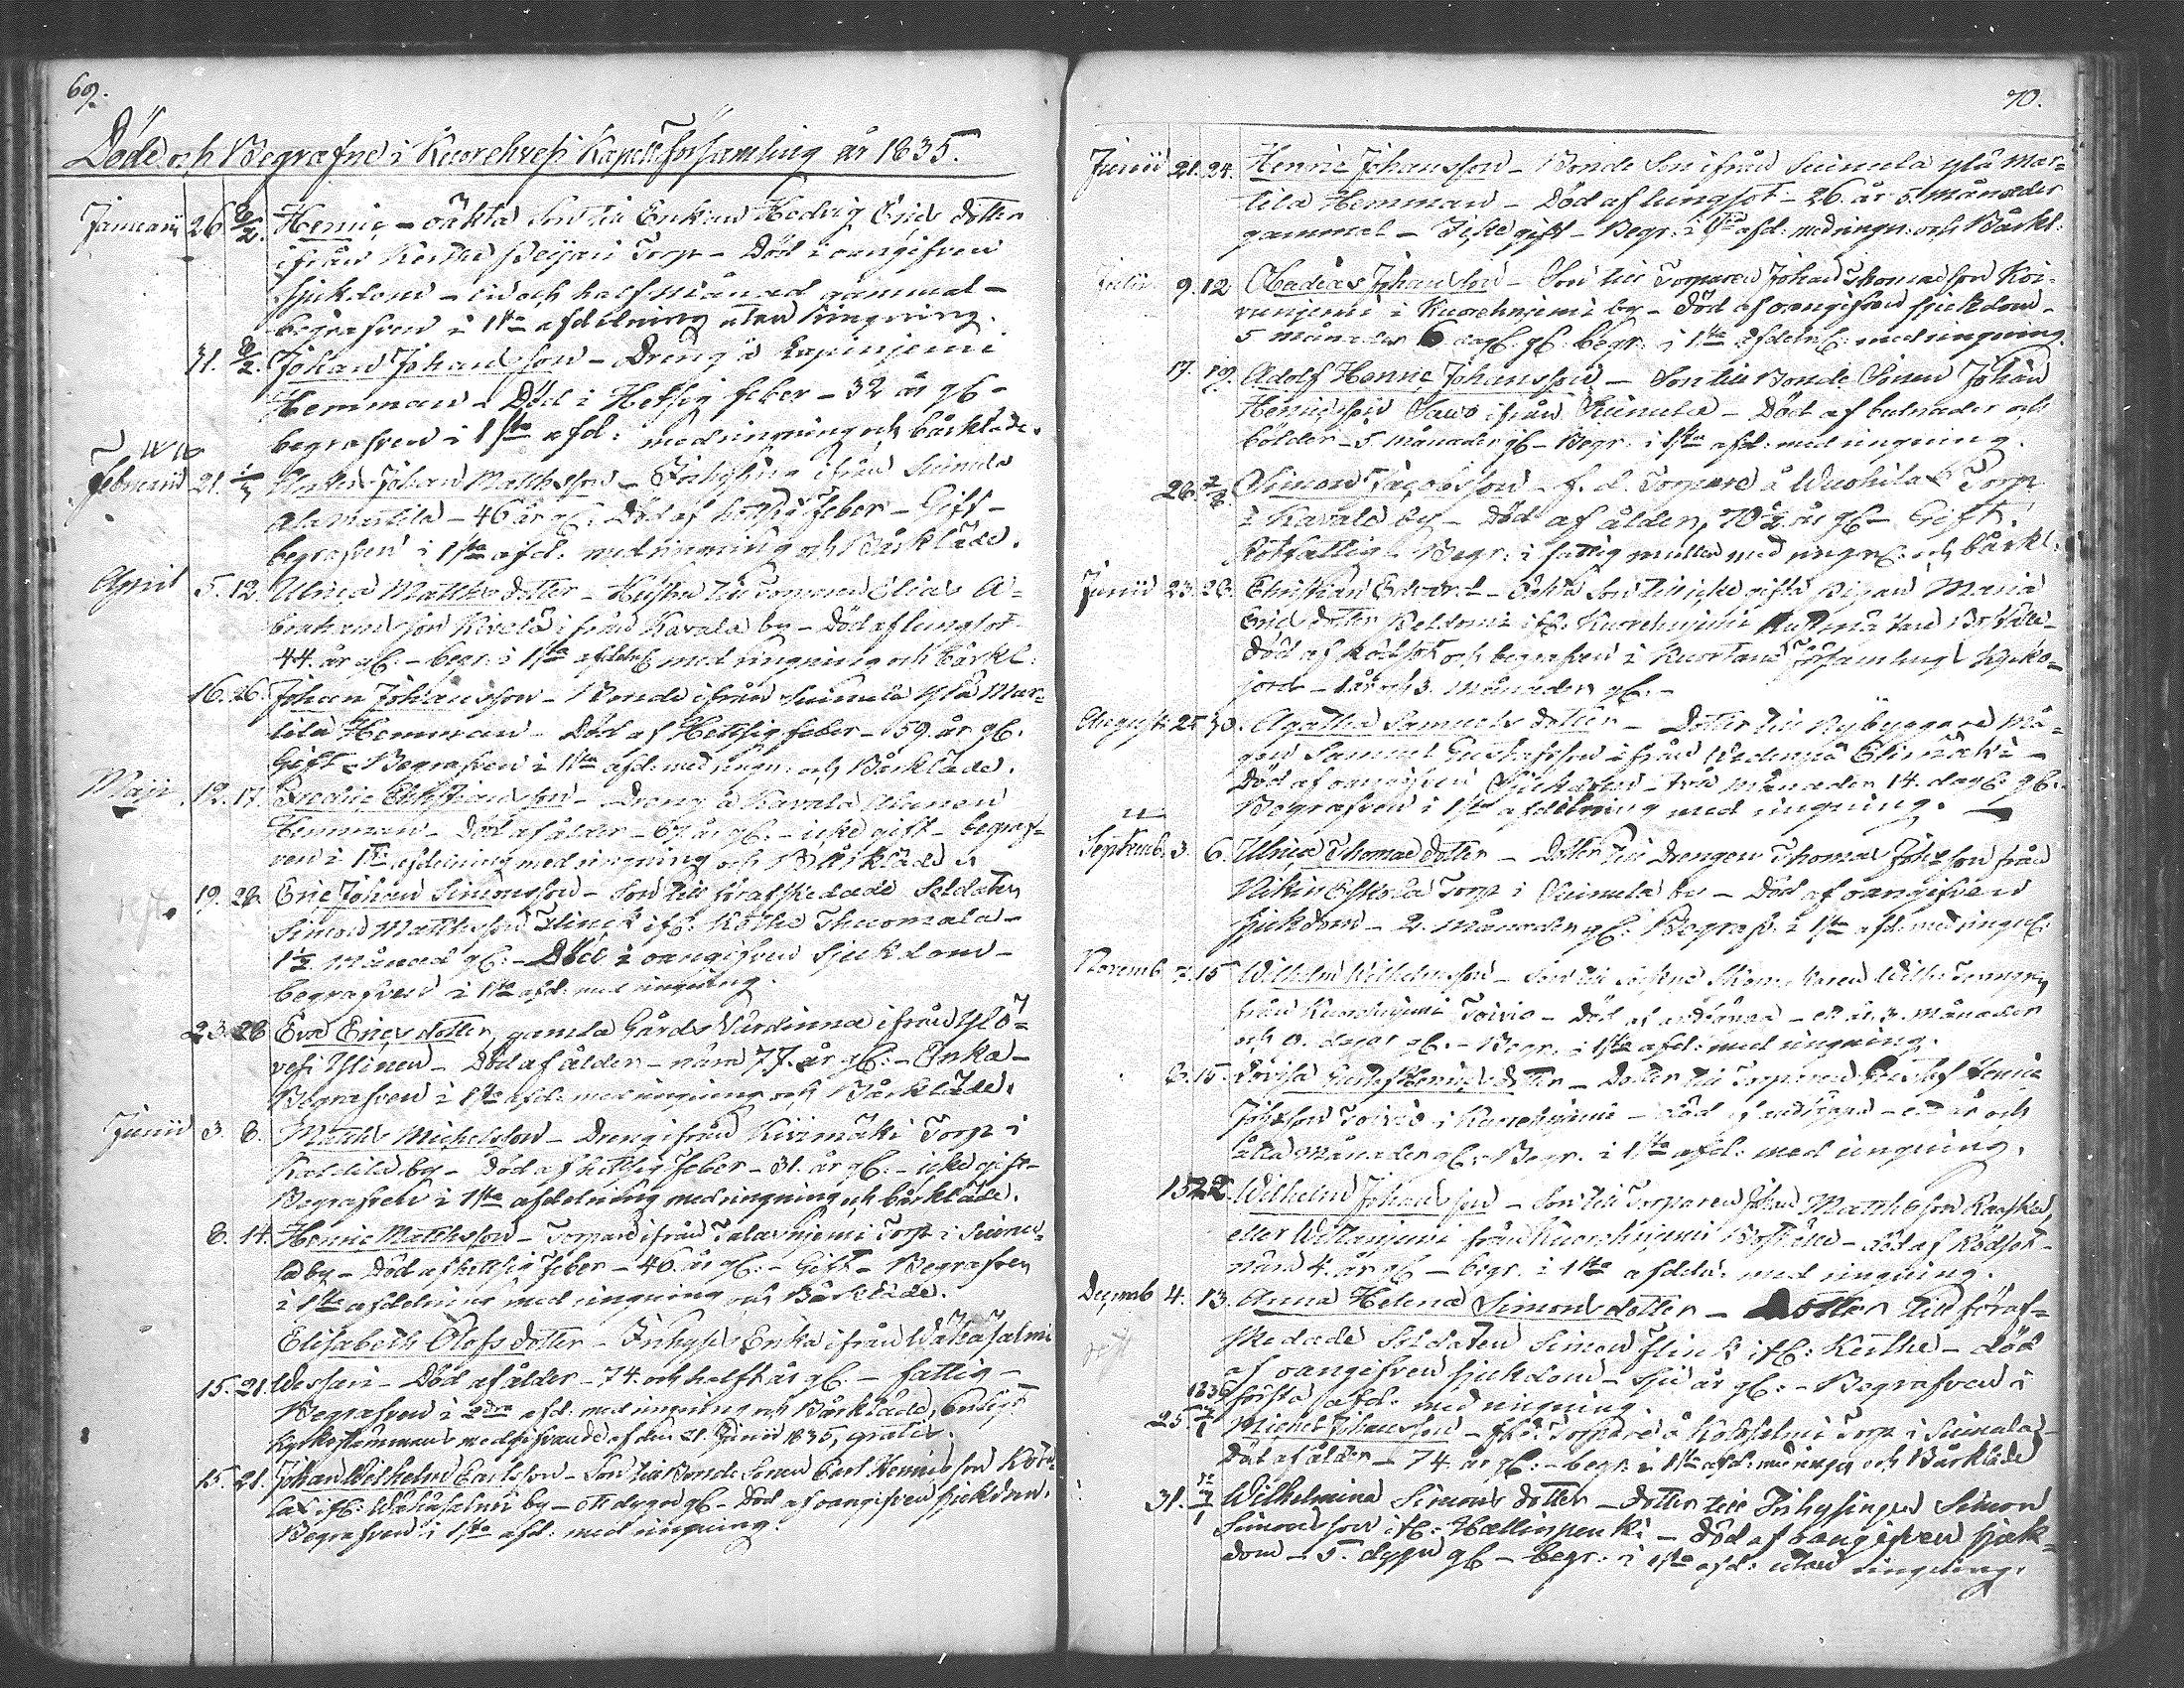 69.
Döde och Begrafne i Kuorehvesi Kapell Församling år 1835.
Januarii 26. 8/2. Henric - oäkta Son till Enkan Hedvig Erics dotter
ifrån Keithe Torp - Död i oangifven
sjukdom - en och half månad gammal -
begrafven i 1sta afdelning utan ringning.
31. 8/2. Johan Johansson - Dreng å Lapinjemi
Hemman - Död i Hetsig feber - 32 år gl -
begrafven i 1sta afd: med ringning och bårkläde.
Februarii 21. 1/3 Johan Matthsson - Inhysing ifrån Suinula
Ala Martila - 46 år gl: Död af hettsig feber - Gift -
begrafven i 1sta afd: med ringning och Bårkläde.
April 5. 12. Ulrica Matths dotter - Hustru till Torparen Elias A=
brahamsson Kivelä ifrån Kavala by - Död af lungsot -
44. år gl. - begr. i 1sta afdeln: med ringning och bårkl:
16. 26. Johan Johansson - Bonde ifrån Suinula Ylä Mar=
tila Hemman - Död af Hettsig feber - 59. år gl.
Gift - Begrafven i 1sta afd: med ringn: och Bårkläde.
Maji 12. 17. Fredric Christiansson - Dreng å Kavala
Hemman - Död af ålder - år gl. - icke gift - begraf=
ven i 1sta afdelning med ringning och Bårkläde.
19. 28. Eric Johan Simonsson - Son till förafskedade Soldaten
Simon Matthsson Flinck if: Keithe Thuomala -
1½ månad gl: - Död i oangifven sjukdom -
begrafven i 1sta afd: med ringning.
23. 28 Eva Erics dotter, gamla Gårds Värdinna ifrån Ylö=
vesi Ylinen - Död af ålder - nära 77. år gl: - Enka -
Begrafven i 1sta afd: med ringning och Bårkläde.
Junii 3. 8. Matths Michelsson - Dreng ifrån Kivimäki Torp i
Kattila by - Död af hettsig feber - 31. år gl: - icke gift -
Begrafven i 1sta afdelning med ringning och bårkläde.
8. 14. Henric Matthsson - Torpare ifrån Talasnjemi Torp i Suinu=
la by - Död af hettsig feber - 46. år gl: - Gift - Begrafven
i 1sta afdelning med ringning och Bårkläde.
Elisabeth Olofs dotter - Inhyses Enka ifrån Wähäsalmi
15. 21. Wessari - Död af ålder - 74. och halft år gl: - fattig -
Begrafven i 2dra afd: med ringning och Bårkläde, enligt
Kyrkostämmans medgifvande af den 21. Junii 1835, gratis.
15. 21. Johan Wilhelm Carlsson - Son till Bonde Sonen Carl Henricsson
if: Wähäsalmi by - ett dygn gl - Död af oangifven sjukdom.
Begrafven i 1sta afd: med ringning.
70.
Junii 21. 24. Henric Johansson - Bonde Son ifrån Suinula Ylä Mar=
tila Hemman - Död af lungsot - 26. år 5. månader
gammal - Icke gift - Begr: i 1sta afd: med ringn: och Bårkl:
Julii 9. 12 Obadias Johansson - Son till Torparen Johan Thomasson Koi=
vunjemi i Kuorehnjemi by - Död af oangifven sjukdom -
5 månader 6 dag: gl: begr: i 1sta afdeln: med ringning.
17. 19. Adolf Henric Johansson - Son till Bonde Sonen Johan
Henricsson Savo ifrån Suinula - Död af bulnader och
bölder - 5 månader gl - Begr: i 1sta afd: med ringning.
26. 2/8. Simon Jacobsson - f. d. Torpare å Wuohila Torp
i Kavala by - Död af ålder, 70½ år gl - Gift.
Rotfattig - Begr: i fattig mulle med ringn: och bårkl:
Junii 23. 28. Christian Edvard - Oäkta Son till icke gifta Pigan Maria
Erics dotter Beldoni if: Kuorehnjemi
Död af Rödsot och begrafven i Kuortane Församlings Kyrko=
jord - 1 år och 3. månader gl: -
August: 25 30. Agatha Samuels dotter - Dotter till Nybyggare Må=
gen Samuel Gustafsson ifrån Elimäki -
Död af oangifven Sjukdom - två månader 14. dag: gl:
Begrafven i 1sta afdelning med ringning.
Septemb. 3. 6. Ulrica Thomas dotter - Dotter till Drengen Thomas Johsson från
Eskola Torp i Suinula by - Död af oangifven
sjukdom - 2. månader gl: Begraf: i 1sta afd: med ringn:
Novemb. 7. 15 Wilhelm Wilhelmsson - Son till Sockne Skomakaren Wilh:
från Kuorehnjemi Toivio - Död af andtäppa - ett år 3. månader
och dagar gl: - Begr: i 1sta afd: med ringning.
8. 15. Lovisa Gustaf Henrics dotter - Dotter till Torparen Gustaf Henric
Johsson Toivio i Kuorehnjemi - död af andtäppa - ett år och
åtta månader gl: - Begr. i 1sta afd: med ringning.
15 22. Wilhelm Johansson - Son till Torparen Johan Matthsson
eller från Kuorehnjemi - död af Rödsot -
nära 4. år gl - begr. i 1sta afdeln: med ringning.
Decemb 4. 13. Anna Helena Simons dotter - Dotter till föraf=
skedade Soldaten Simon Flink if: Keithe - död
af oangifven sjukdom - sju år gl: - Begrafven i
första afd: med ringning.
25 1836 Michel Johansson - f. d. Torpare å Torp i Suinula -
Död af ålder - 74. år gl: - begr: i 1sta afd: med ringn: och Bårkläde
31. Wilhelmina Simons dotter - dotter till Inhysingen Simon
Simonsson if: Hallinpenki - Död af oangifven sjuk=
dom - 5. dygn gl - begr: i 1sta afd: utan ringning.